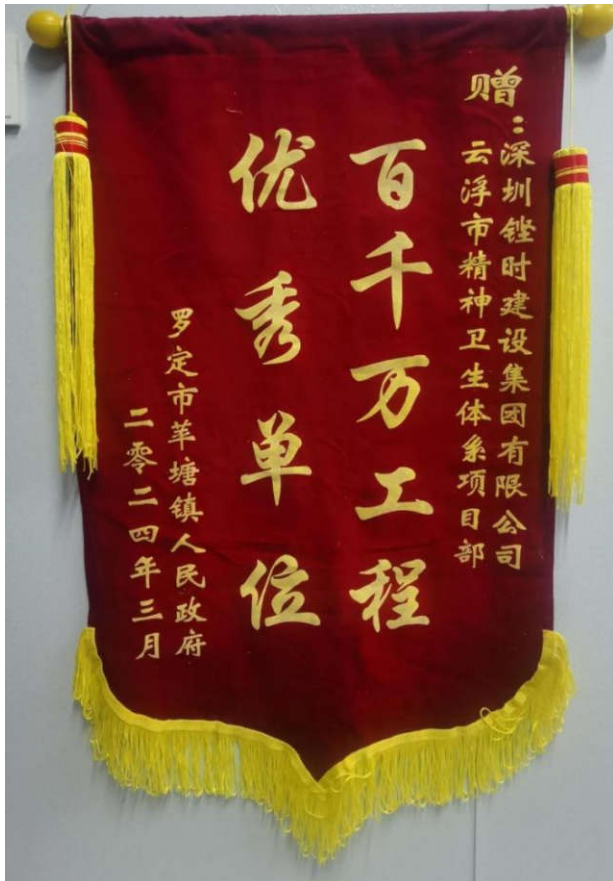 赠：深圳铿时建设集团有限公司
云浮市精神卫生体系项目部
百千万工程
优秀单位
罗定市苹塘镇人民政府
二零二四年三月